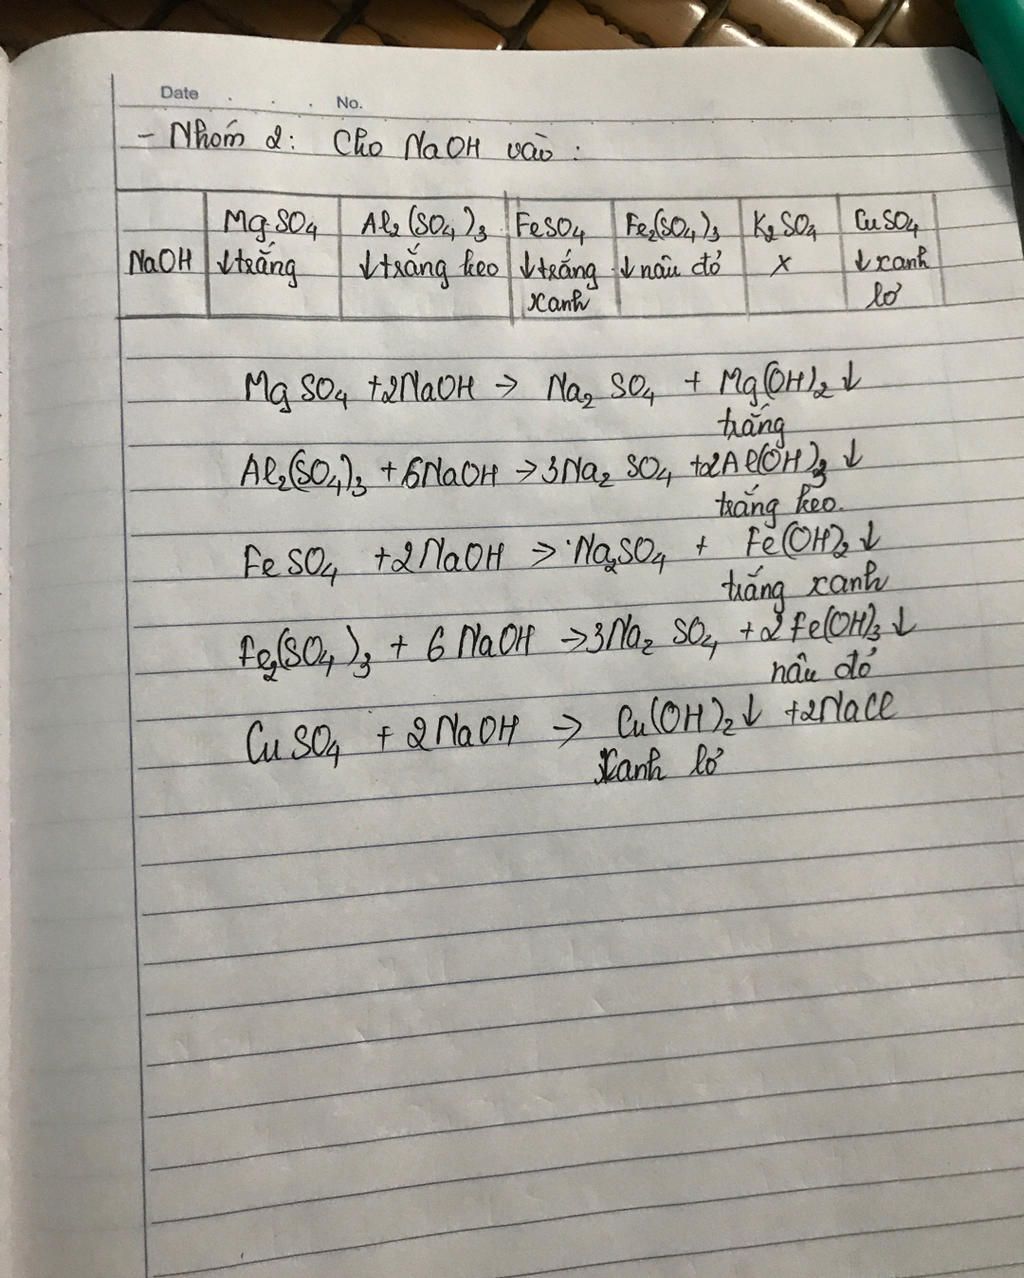 Date . . . No.
- Nhóm 2: Cho NaOH vào:
MgSO4 Al2(SO4)3 FeSO4 Fe2(SO4)3 K2SO4 CuSO4
NaOH ↓trắng ↓trắng keo ↓trắng ↓nâu đỏ x ↓xanh
xanh lơ
MgSO4 +2NaOH → Na2SO4 + Mg(OH)2↓
trắng
Al2(SO4)3 +6NaOH →3Na2SO4 +2Al(OH)3↓
trắng keo.
FeSO4 +2NaOH → Na2SO4 + Fe(OH)2↓
trắng xanh
Fe2(SO4)3 + 6NaOH →3Na2SO4 +2Fe(OH)3↓
nâu đỏ
CuSO4 + 2NaOH → Cu(OH)2↓ +2NaCl
Xanh lơ